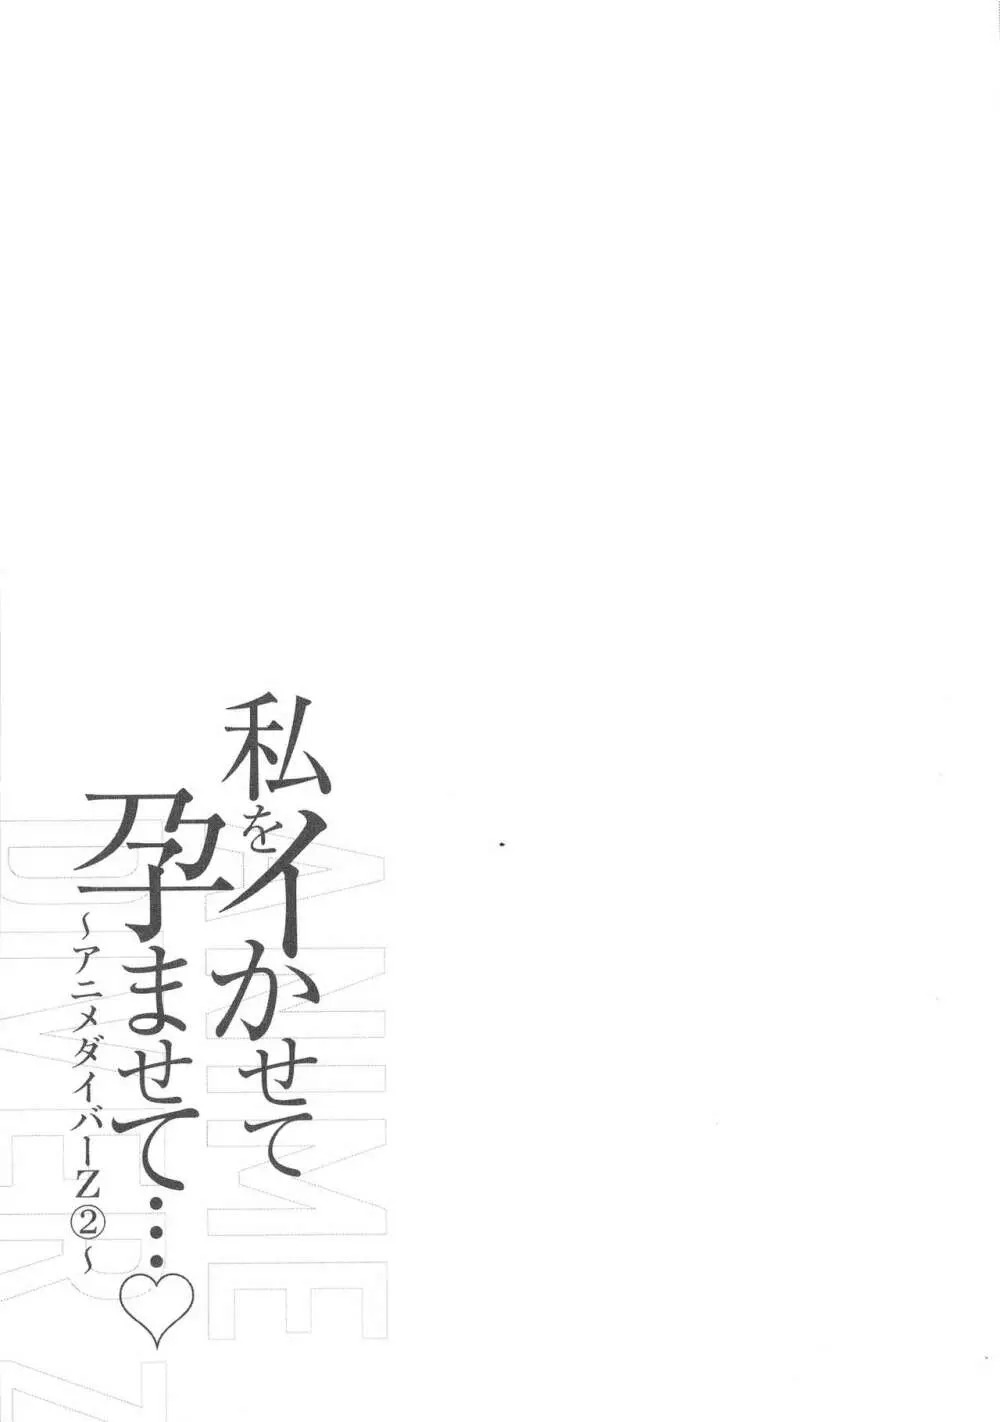 私をイかせて
孕ませて…♡
～アニメダイバーZ②～
ANIME
DIVER Z